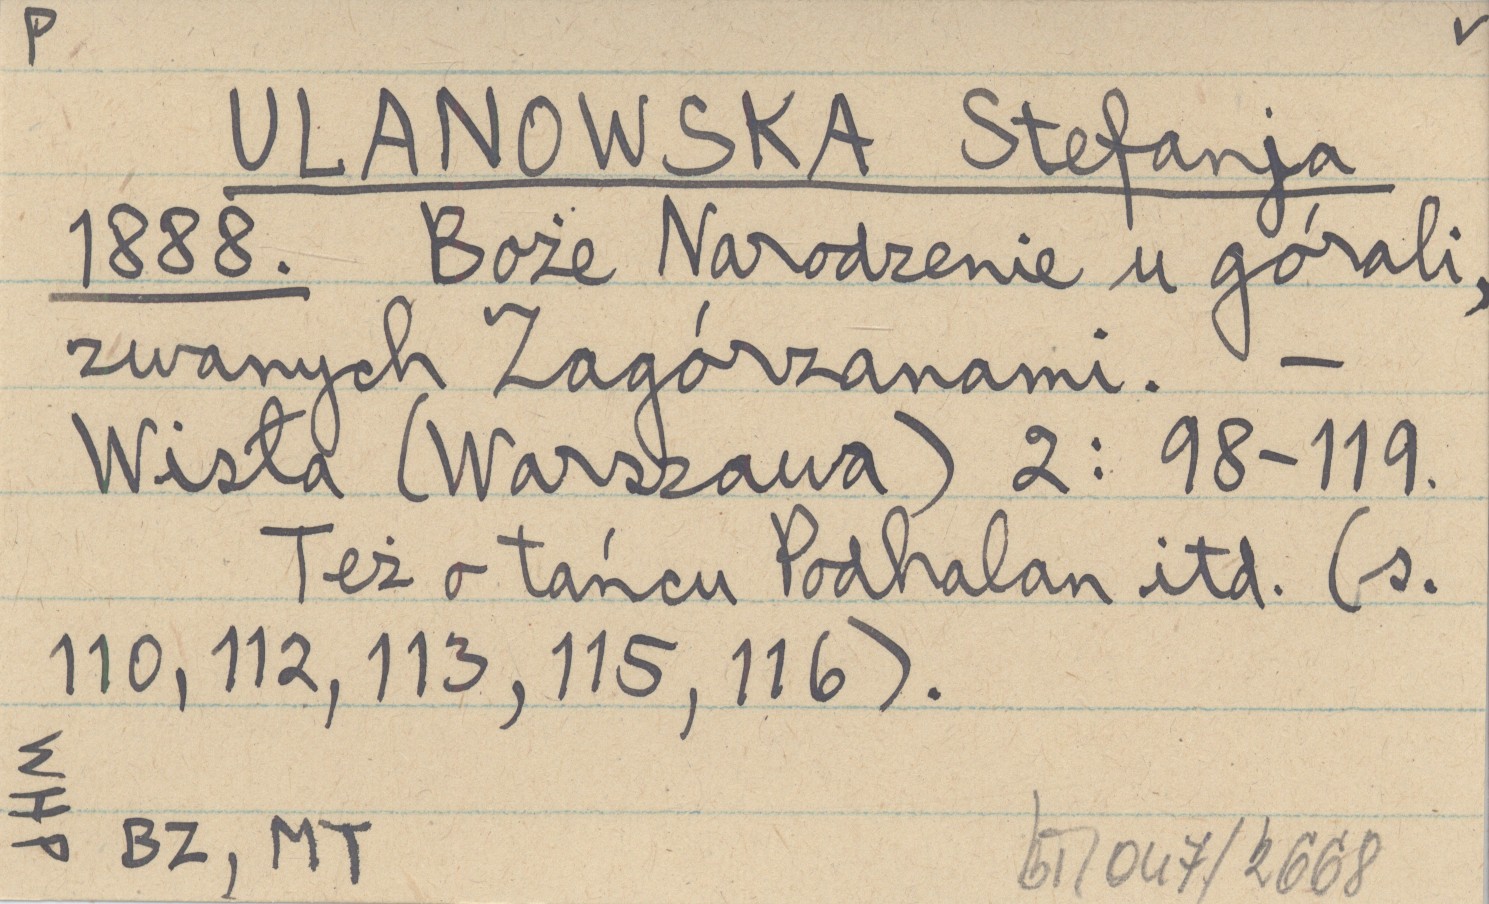 P
v
ULANOWSKA Stefanja
1888. Boże Narodzenie u górali,
zwanych Zagórzanami. –
Wisła (Warszawa) 2: 98-119.
Też o tańcu Podhalan itd. (s.
110, 112, 113, 115, 116).
PHM
BZ, MT
047/2668